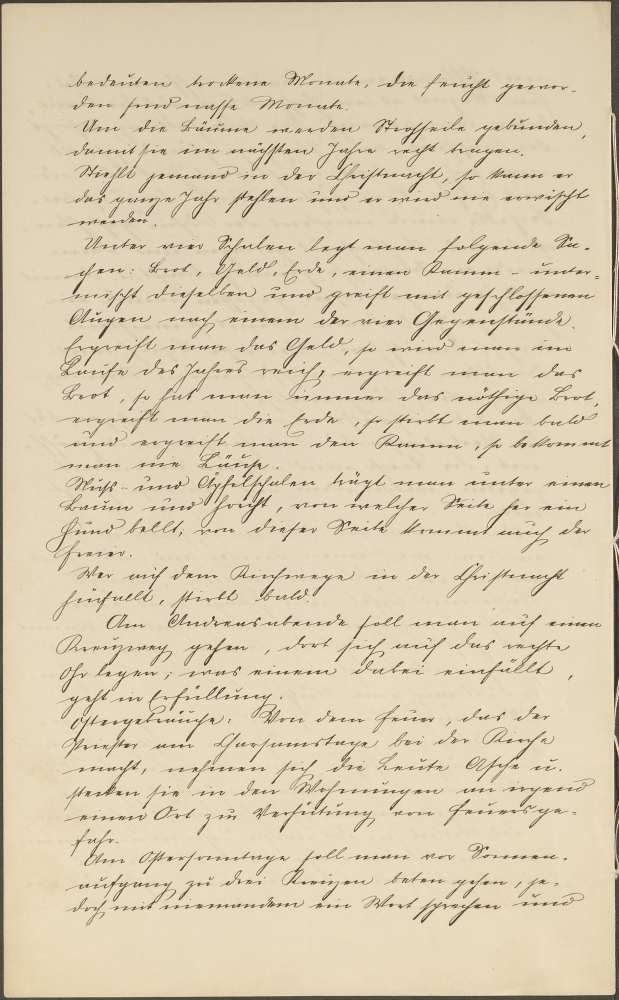 bedeuten trockene Monate, die feucht gewor-
den sind nasse Monate.
Um die Bäume werden Strohseile gebunden,
damit sie im nächsten Jahre recht tragen.
Stiehlt jemand in der Christnacht, so kann er
das ganze Jahr stehlen und er wird nie erwischt
werden.
Unter vier Schalen legt man folgende Sa-
chen: Brot, Geld, Erde, einen Kamm - unter-
mischt dieselben und greift mit geschlossenen
Augen nach einem der vier Gegenstände.
Ergreift man das Geld, so wird man im
Laufe des Jahres reich, ergreift man das
Brot, so hat man immer das nöthige Brot,
ergreift man die Erde, so stirbt man bald
und ergreift man den Kamm, so bekommt
man nie Läuse.
Nuss- und Äpfelschalen trägt man unter einen
Baum und horcht, von welcher Seite her ein
Hund bellt; von dieser Seite kommt auch der
Freier.
Wer auf dem Kirchwege in der Christnacht
hinfällt, stirbt bald.
Am Andreasabende soll man auf einen
Kreuzweg gehen, dort sich auf das rechte
Ohr legen; was einem dabei einfällt,
geht in Erfüllung.
Ostergebräuche: Von dem Feuer, das der
Priester am Charsamstage bei der Kirche
macht, nehmen sich die Leute Asche u.
stecken sie in den Wohnungen an irgend
einen Ort zur Verhütung von Feuersge-
fahr.
Am Ostersonntage soll man vor Sonnen-
aufgang zu drei Kreuzen beten gehen, je-
doch mit niemandem ein Wort sprechen und